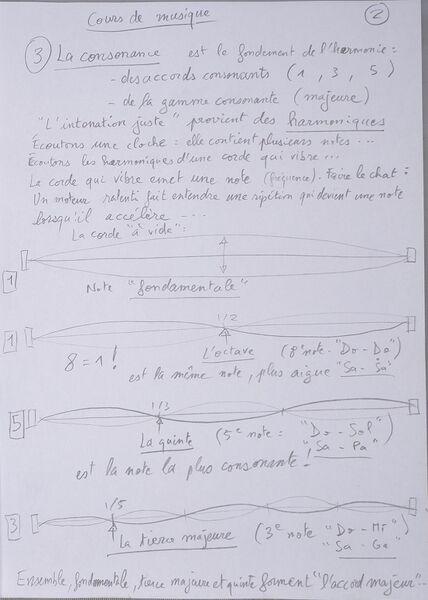 Cours de musique
2
3 La consonance est le fondement de l'harmonie :
- des accords consonants (1, 3, 5)
- de la gamme consonante (majeure)
"L'intonation juste" provient des harmoniques
Écoutons une cloche : elle contient plusieurs notes ...
Écoutons les harmoniques d'une corde qui vibre ...
La corde qui vibre emet une note (fréquence). Faire le chat :
Un moteur ralenti fait entendre une répition qui devient une note
lorsqu'il accélère ....
La corde "à vide" :
1
Note "fondamentale"
1/2
1
8 = 1 !
L'octave (8e note - "Do - Do")
est la même note, plus aigue "Sa - Sa"
1/3
5
La quinte (5e note : "Do - Sol")
"Sa - Pa"
est la note la plus consonante !
1/5
3
La tierce majeure (3e note "Do - Mi")
"Sa - Ga"
Ensemble, fondamentale, tierce majeure et quinte forment "l'accord majeur"...